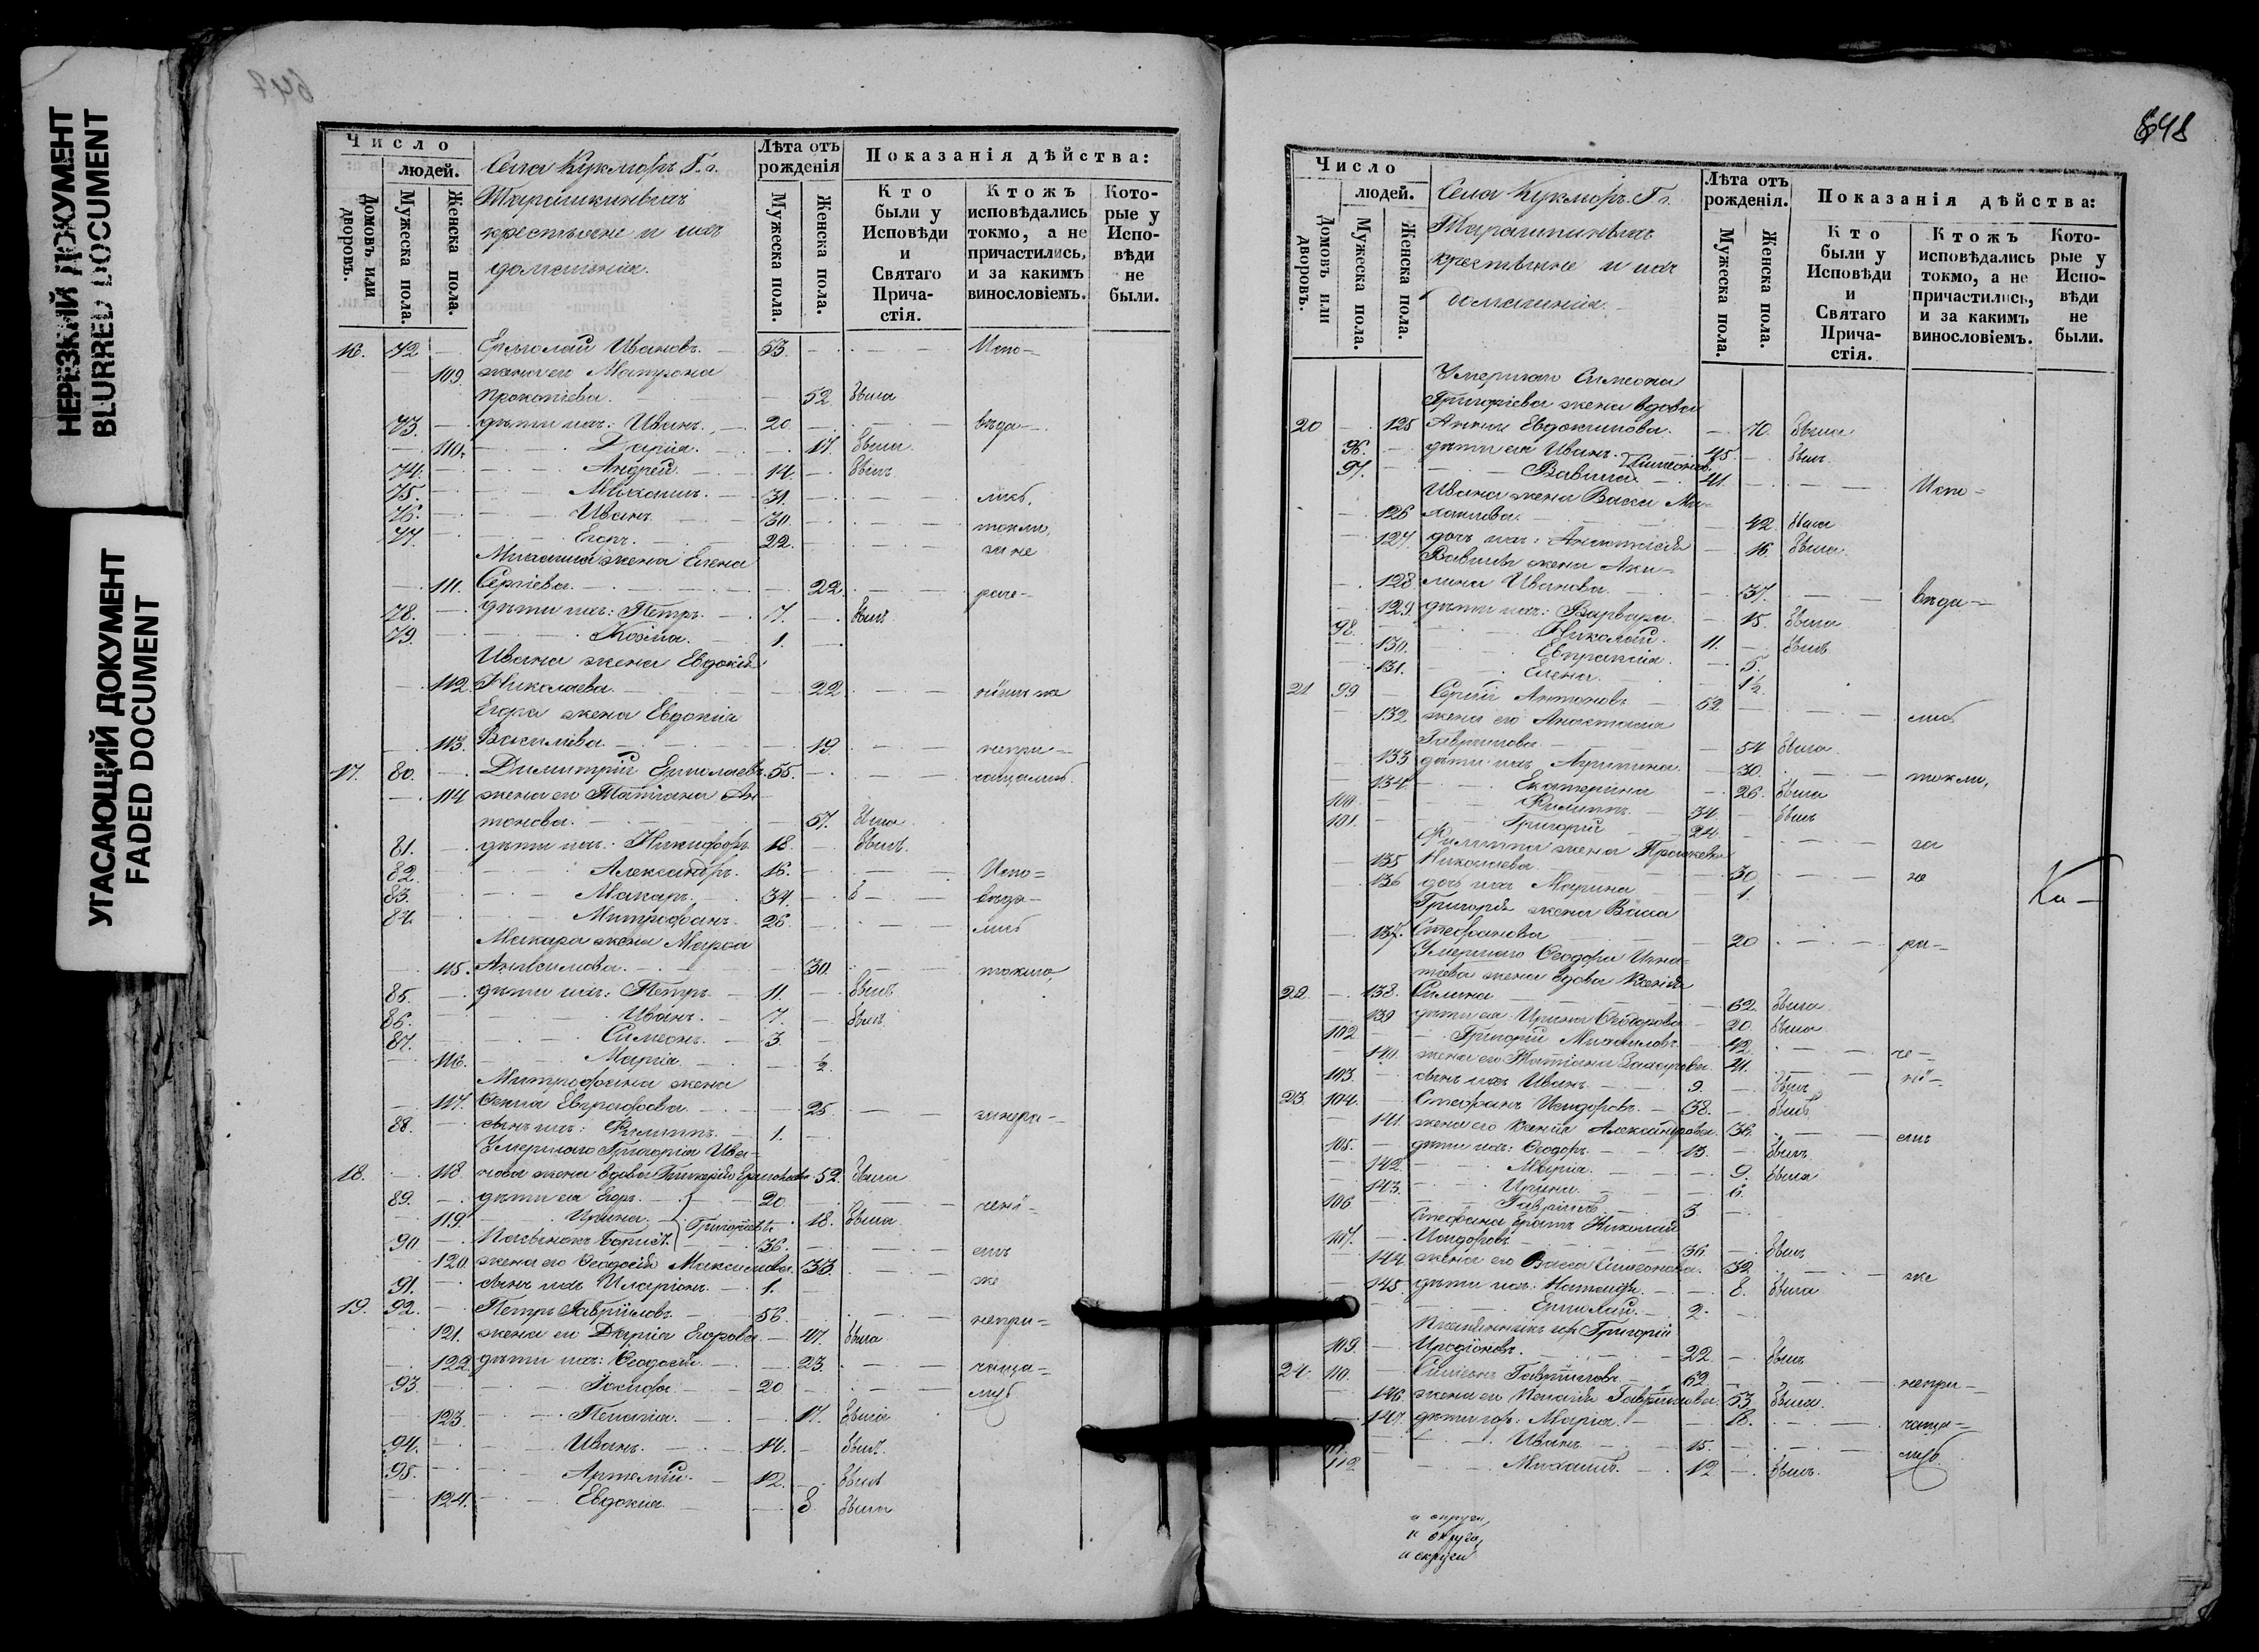 НЕРЕЗКИЙ ДОКУМЕНТ
BLURRED DOCUMENT
УГАСАЮЩИЙ ДОКУМЕНТ
FADED DOCUMENT
Число
людей.
Домовъ или дворовъ.
Мужеска пола.
Женска пола.
Села Кукморъ Г.
крестьяне и ихъ
домашнія.
Лѣта отъ рожденія
Мужеска пола.
Женска пола.
Показанія дѣйства:
Кто были у Исповѣди и Святаго Прича-стія.
Ктожъ исповѣдались токмо, а не причастились, и за какимъ винословіемъ.
Кото-рые у Испо-вѣди не были.
16. 72 Ермолай Ивановъ. 53. Испо-
109. жена его Матрона
Прокопіева. 52 была
73. дѣти ихъ: Иванъ. 20 вѣда-
110. Дарія. 17. была
74. Андрей. 14. былъ
75. Михаилъ. 31. лись
76. Иванъ. 30. токмо,
77. Егоръ. 22. за не
Михаила жена Елена
111. Сергіева. 22. раче-
78. дѣти ихъ: Петръ. 7. былъ
79. Козма. 1.
Ивана жена Евдокія
112. Николаева. 22
Егора жена Евдокія
113. Василіева. 19. непри-
17. 80. Димитрій Ермолаевъ. 55. чащались
114 жена его Татіана Ан-
тонова. 57. была
81. дѣти ихъ: Никифоръ 18. былъ
82. Александръ. 16. Испо-
83. Макаръ. 34. вѣда-
84. Митрофанъ. 26. лись
Макара жена Марѳа
115. Анисимова. 30. токмо,
85. дѣти ихъ: Петръ 11. былъ
86. Иванъ. 7. былъ
87. Симеонъ. 3.
116. Марія. ½
Митрофана жена
117. Евграфова. 25 за нера-
88. сынъ ихъ: Филиппъ. 1.
Умершаго Григорія Ива-
18. 118 нова жена вдова Гликерія Ермолаева 52. была
89. дѣти ея Егоръ. 20. чені-
119. Ирина. Григорьевы 18. была
90. Борисъ. 36. емъ
120. жена его Ѳеодосія Максимова. 33. же
91. сынъ ихъ Иларіонъ. 1.
19. 92. Петръ Гавриловъ. 56. непри-
121. жена его Дарія Егорова. 47. была
122. дѣти ихъ: Ѳеодосія. 23. чаща-
93. Іосифъ. 20 лись
123. Пелагія. 17. была
94. Иванъ. 14. былъ.
95. Артемій. 12. былъ
124. Евдокія. 8 была
648
Число
людей.
Домовъ или дворовъ.
Мужеска пола.
Женска пола.
Села Кукморъ. Г.
крестьяне и ихъ
домашнія.
Лѣта отъ рожденія.
Мужеска пола.
Женска пола.
Показанія дѣйства:
Кто были у Исповѣди и Святаго Прича-стія.
Ктожъ исповѣдались токмо, а не причастились, и за какимъ винословіемъ.
Кото-рые у Испо-вѣди не были.
Умершаго Симеона
Григорьева жена вдова
20 125 Анна Евдокимова. 70. была
96. дѣти ея Иванъ. Симеонов. 45. былъ.
97. Вавила. 41. Испо-
Ивана жена Васса Ма-
126 лахіева. 42. была
127. дочь ихъ: Анастасія 16. была.
Вавилы жена Аки-
128 лина Иванова. 37. вѣда-
129. дѣти ихъ: Варвара. 15. была
98. Николай. 11. былъ
130. Евпраксія. 5.
131. Елена. 1½.
21 99 Сергій Антоновъ 52 лись
132. жена его Анастасія
Гаврилова. 54 была
133 дѣти ихъ Агрипина. 30. токмо,
134. Екатерина 26. была
100. Филиппъ. 34. былъ
101. Григорій 24. за
Филиппа жена Праскевья
135 Николаева. 30. не
136 дочь ихъ Марина 1.
Григорія жена Васса
137. Стефанова 20 ра-
Ка-
Умершаго Ѳеодора Игна-
тіева жена вдова Ксенія
22. 138. Силина 62. была
139 дѣти ея Ирина Ѳеодорова 20. была
102. Григорій Михайловъ. 42. че-
140. жена его Татіана Захарова. 41. ні-
103. сынъ ихъ Иванъ 9. былъ
23. 104. Стефанъ Исидоровъ. 38. былъ
141. жена его Ксенія Александрова. 36. емъ
105. дѣти ихъ: Ѳеодоръ. 13. былъ.
142. Марія. 9. была
143. Ирина. 6.
106 Гавріилъ. 3.
Стефана братъ Николай
107. Исидоровъ. 36. былъ
144. жена его Васса Симеонова. 32. же
145. дѣти ихъ: Наталія. 8. была
Ермолай. 2.
Племянникъ их Григорій
109. Иродіоновъ. 22. былъ
24. 110. Симеонъ Гавриловъ. 62. непри-
146. жена его Пелагія Гаврилова. 53 была.
147. дѣти их: Марія. 18. чаща-
111. Иванъ. 15. лись
112 Михаилъ. 12 былъ.
и округи,
и округи,
и округи